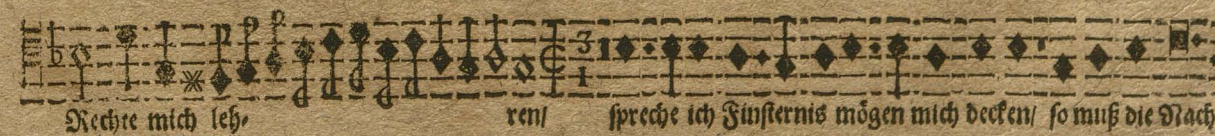 Rechte mich leh⸗ ren/ spreche ich Finsternis mögen mich decken/ so muß die Nach